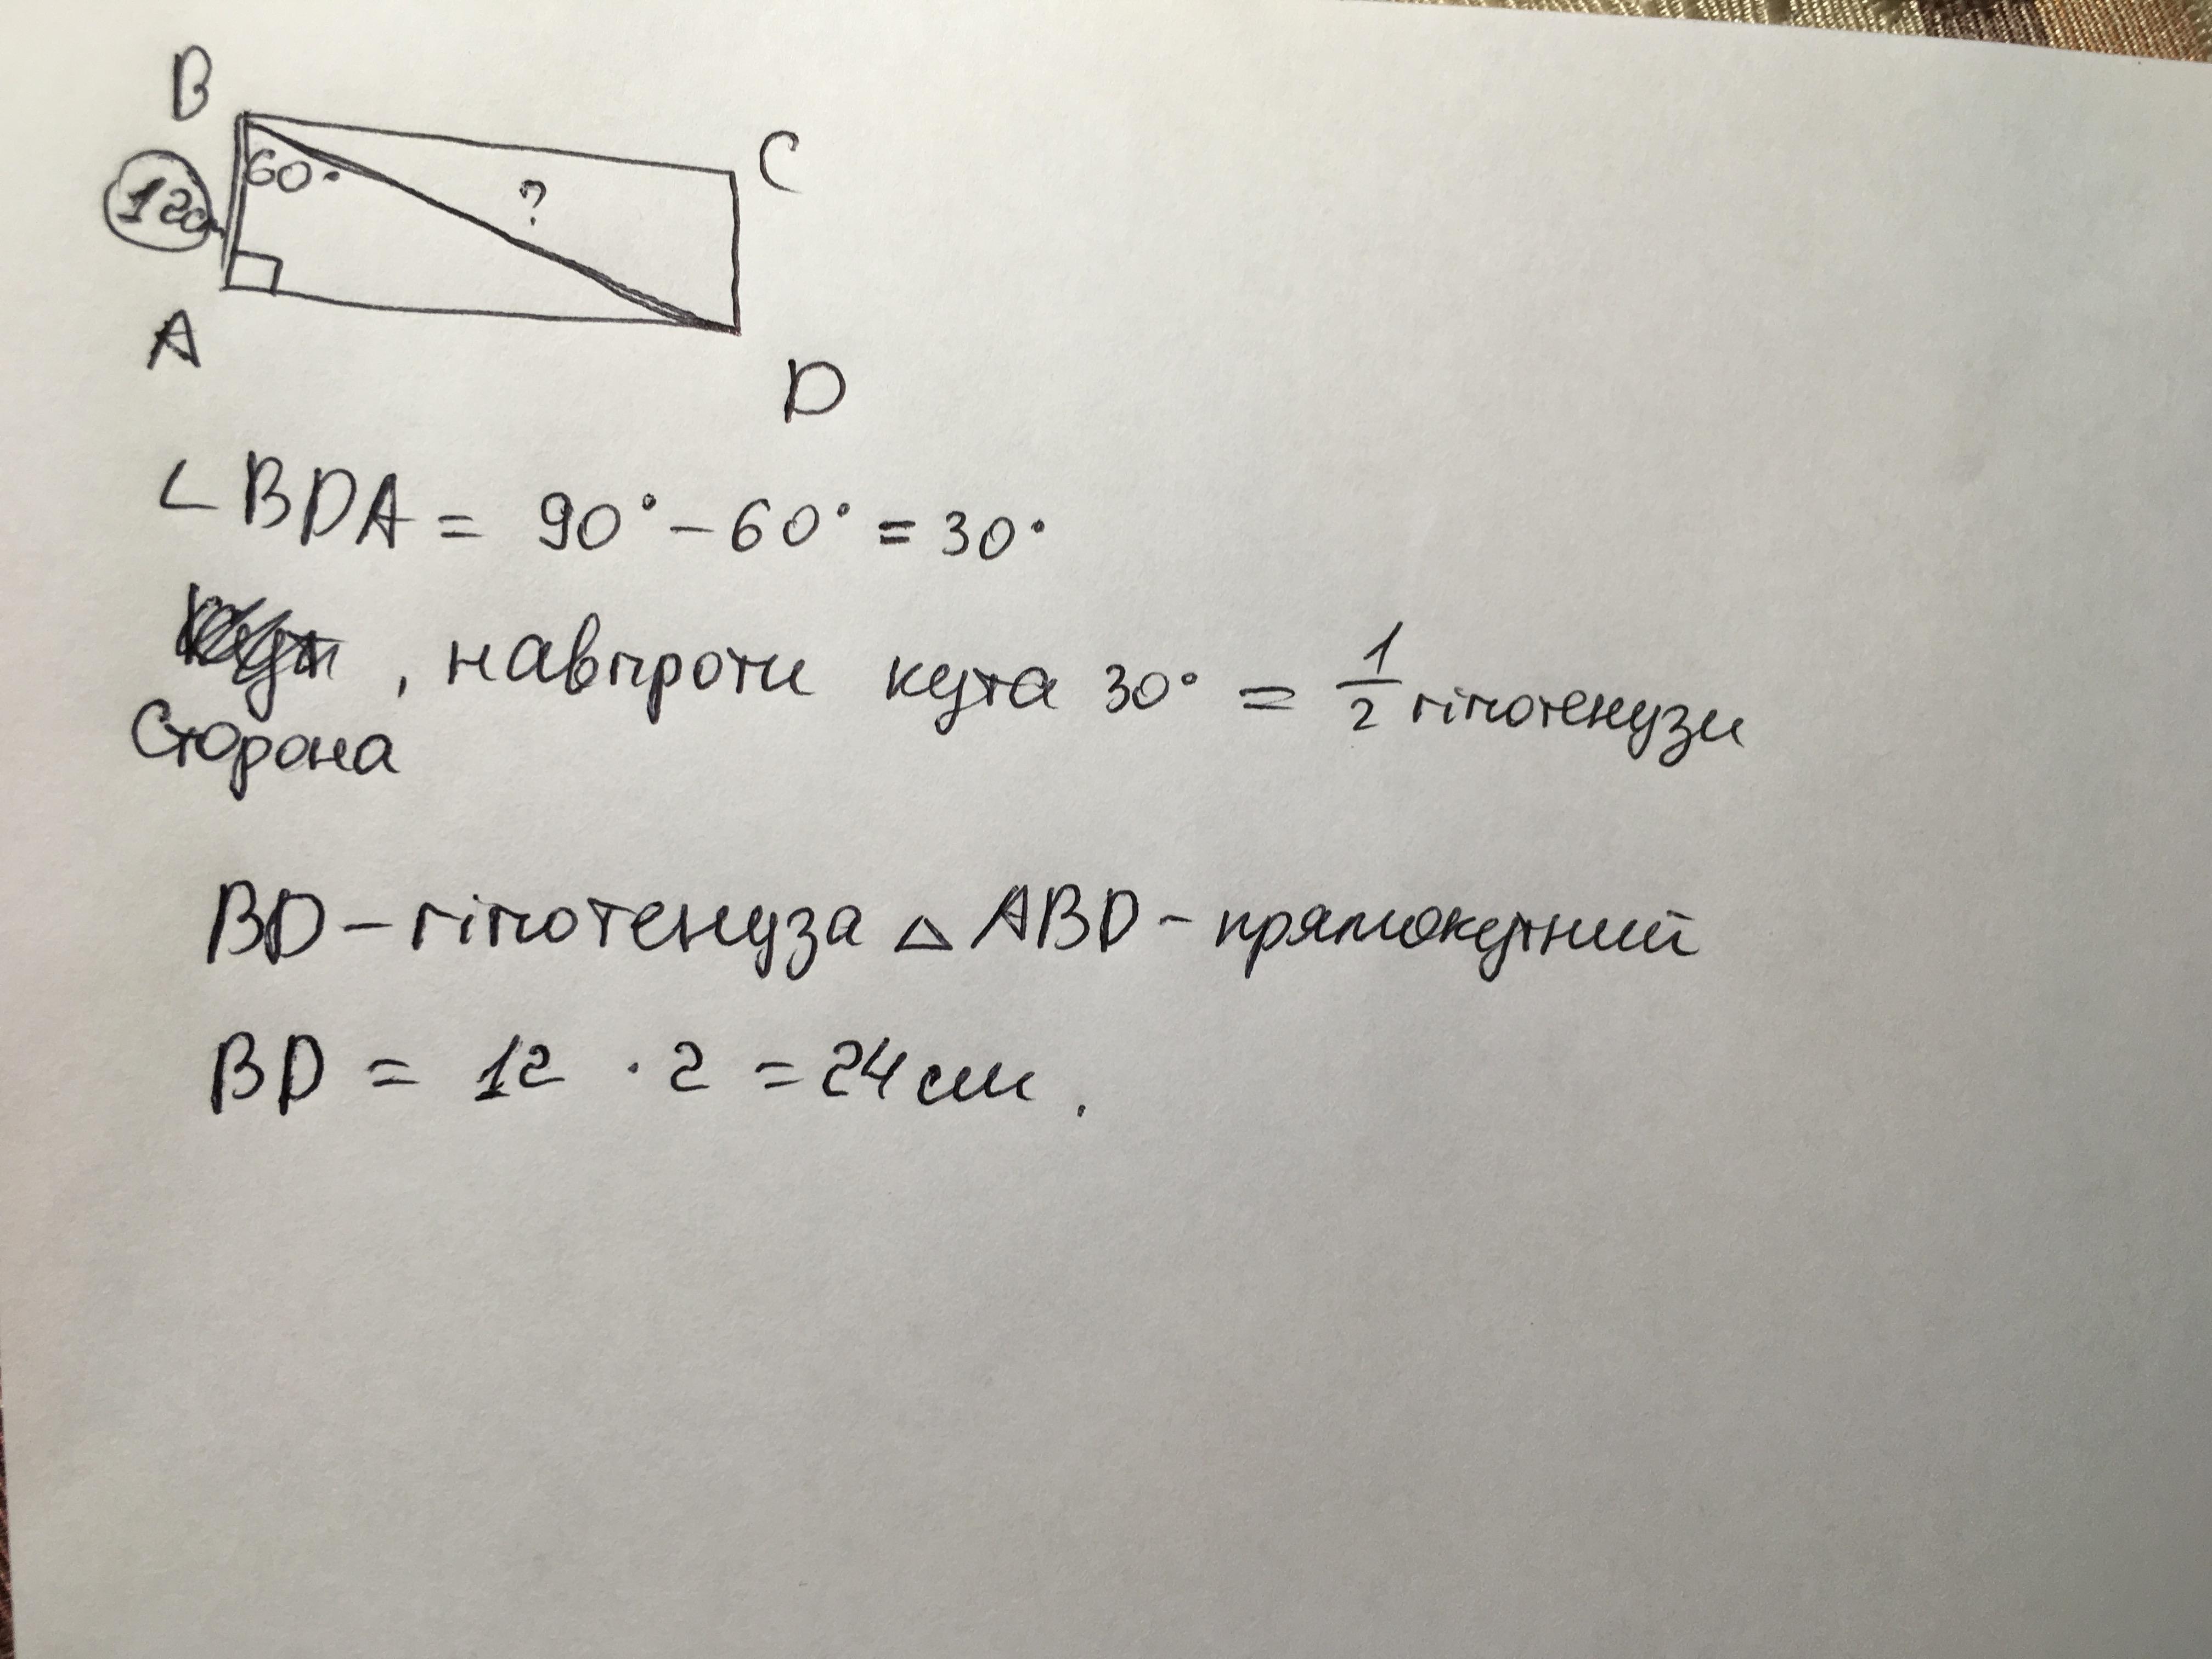 B
C
60°
?
12
A
D
∠BDA = 90° - 60° = 30°
, навпроти кута 30° = 1/2 гіпотенузи
Сторона
BD - гіпотенуза △ ABD - прямокутний
BD = 12 · 2 = 24 см.